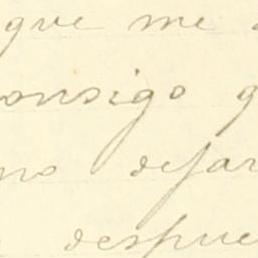 que me
consigo q
no dejar
despue